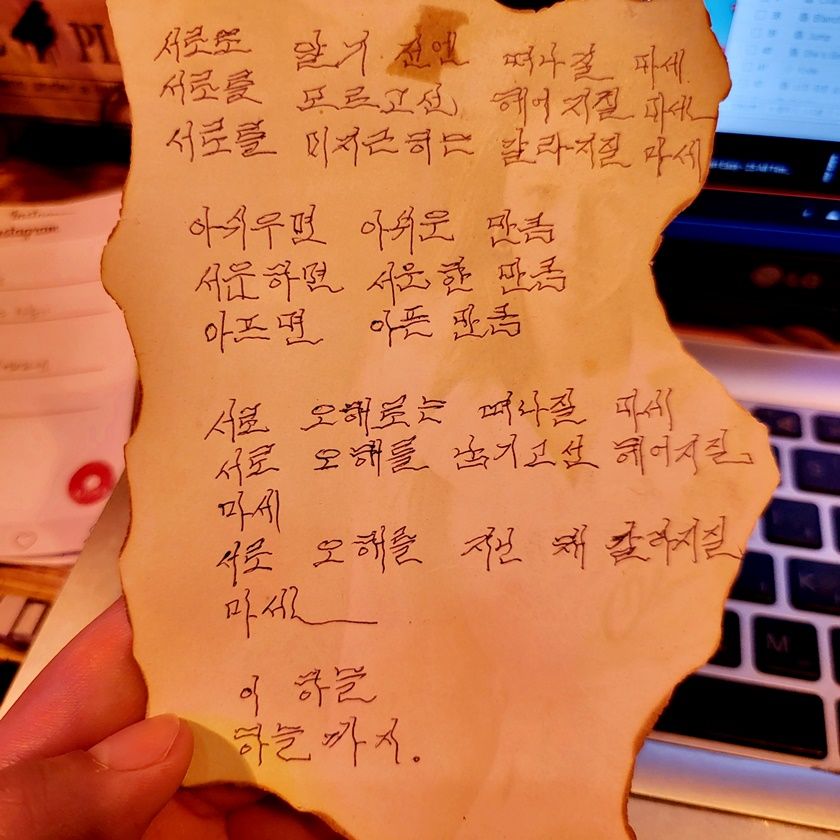 서로로 알기 전엔 떠나질 마세
서로를 모르고선 헤어지질 마세
서로를 미지근하는 갈라지질 마세
아쉬우면 아쉬운 만큼
서운하면 서운한 만큼
아프면 아픈 만큼
서로 오해로는 떠나질 마세
서로 오해를 남기고선 헤어지질
마세
서로 오해를 지닌 채 갈라지질
마세
이 하늘
하늘까지.
PL
Instagram
LG
M